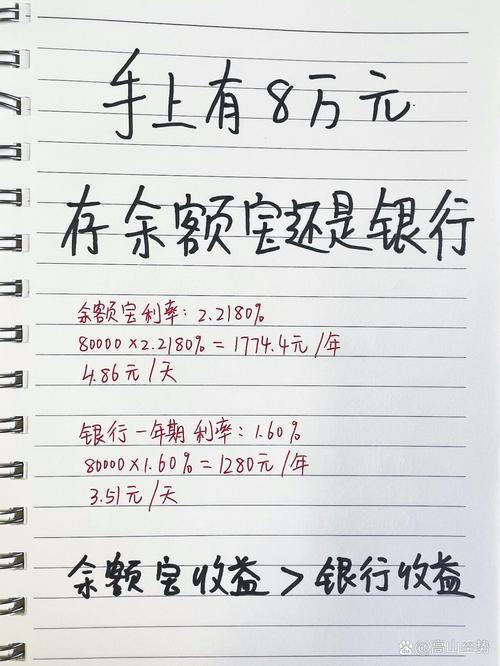 手上有8万元
存余额宝还是银行
余额宝利率：2.2180%
80000×2.2180%=1774.4元/年
4.86元/天
银行一年期利率：1.60%
80000×1.60%=1280元/年
3.51元/天
余额宝收益>银行收益
@高山至势